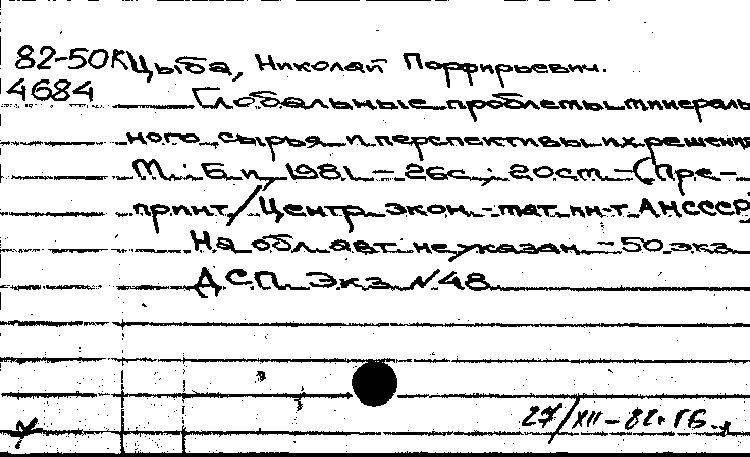 82-50К Цыба, Николай Порфирьевич.
4684 Глобальные проблемы минераль-
ного сырья и перспективы их решения
М.: Б.и., 1981. - 26с.; 20см. - (Пре-
принт / Центр. экон.-мат. ин-т АН СССР)
На обл. авт. не указан. - 50 экз.
ДСП Экз. N48
27/XII-82г. ГБ